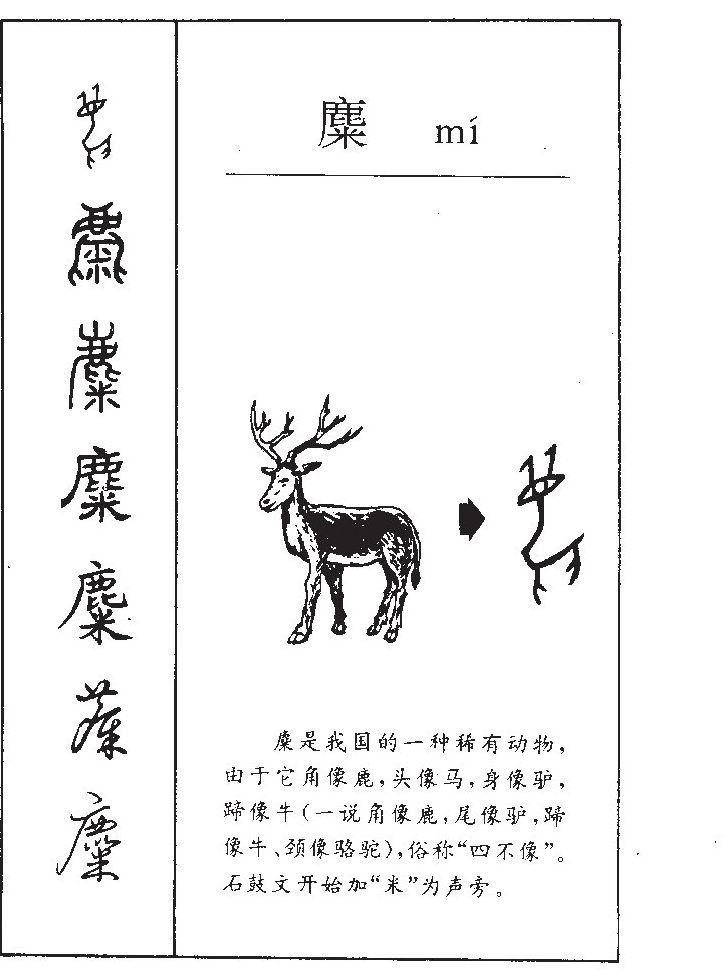 麋 mí
麋是我国的一种稀有动物，
由于它角像鹿，头像马，身像驴，
蹄像牛（一说角像鹿，尾像驴，蹄
像牛、颈像骆驼），俗称“四不像”。
石鼓文开始加“米”为声旁。